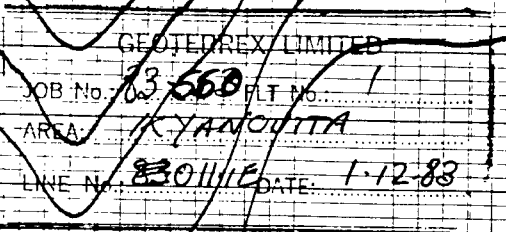 GEOTERREX LIMITED
JOB No. 83-560 FLT No. 1
AREA: KYANOUTTA
LINE No. 830111E DATE: 1.12.83